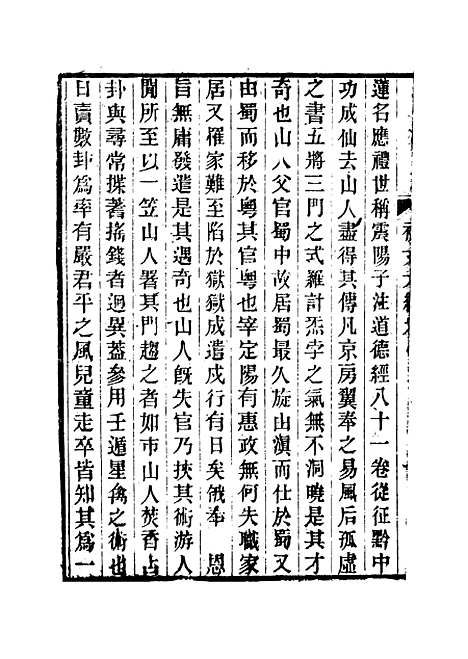 蓮名應禮世稱震陽子注道德經八十一卷從征黔中
功成仙去山人盡得其傳凡京房翼奉之易風后孤虛
之書五將三門之式羅計炁孛之氣無不洞曉是其才
奇也山人父官蜀中故居蜀最久旋由滇而仕於蜀又
由蜀而移於粵其官粵也宰定陽有惠政無何失職家
居又罹家難至陷於獄獄成遣戍行有日矣俄奉　恩
旨無庸發遣是其遇奇也山人旣失官乃挾其術游人
閒所至以一笠山人署其門趨之者如市山人焚香占
卦與尋常揲蓍搖錢者迥異蓋參用壬遁星禽之術也
日賣數卦爲率有嚴君平之風兒童走卒皆知其爲一